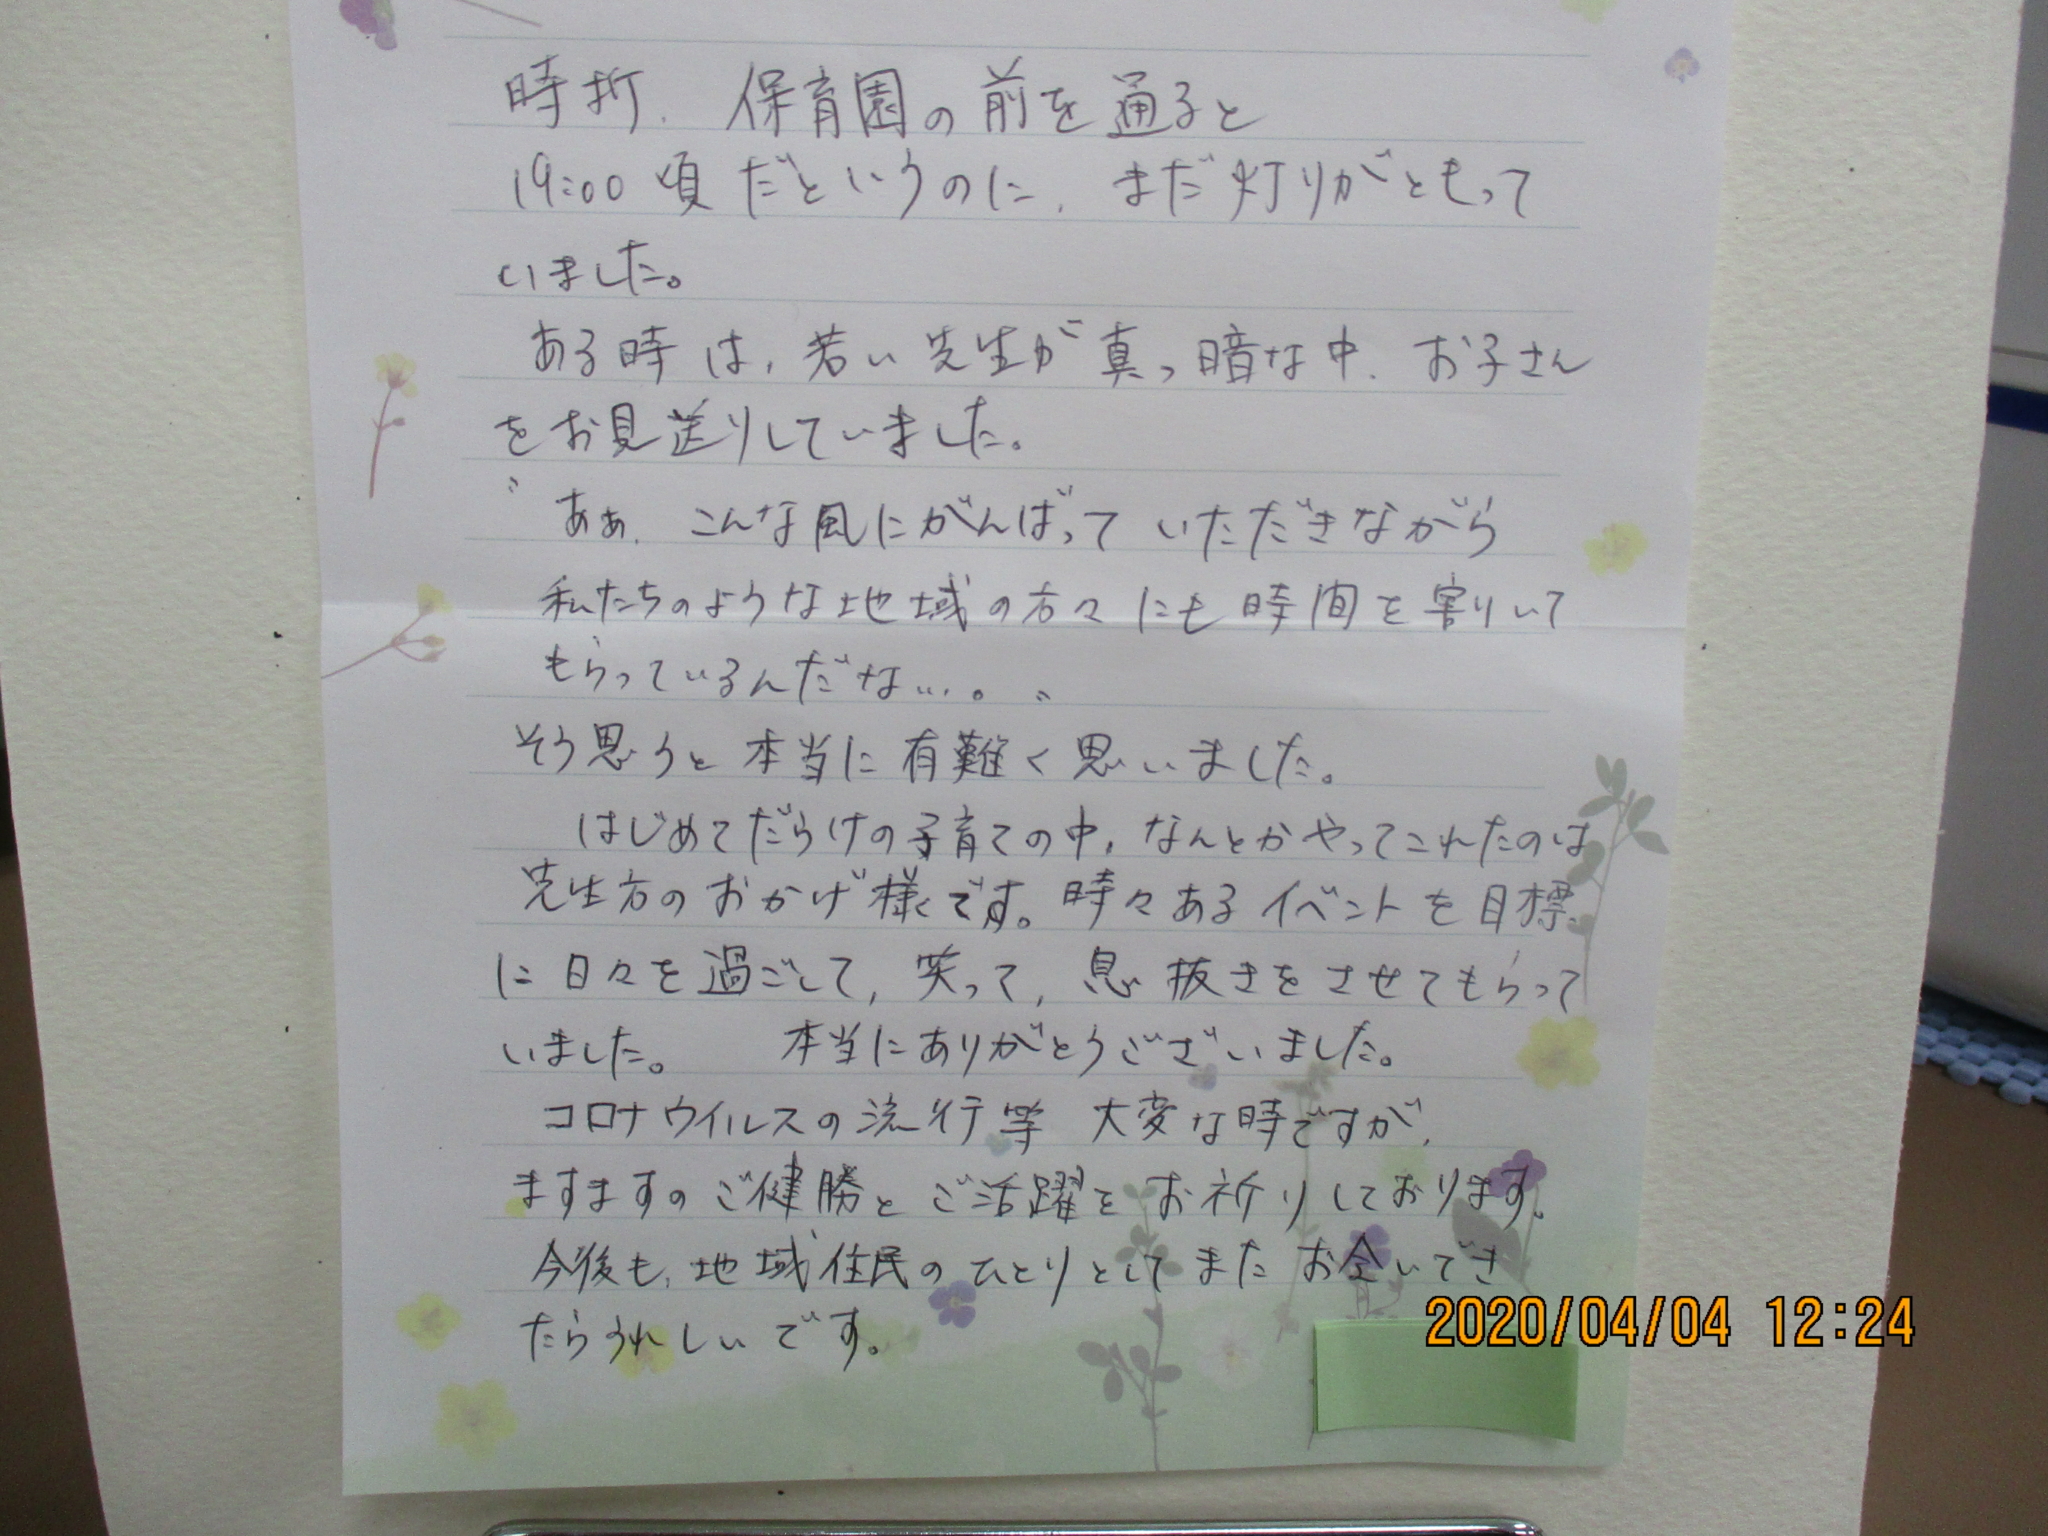 時折、保育園の前を通ると
19:00頃だというのに、まだ灯りがともって
いました。
ある時は、若い先生が真っ暗な中、お子さん
をお見送りしていました。
〝あぁ、こんな風にがんばっていただきながら
私たちのような地域の方々にも時間を割りいて
もらっているんだな…。〟
そう思うと本当に有難く思いました。
はじめてだらけの子育ての中、なんとかやってこれたのは
先生方のおかげ様です。時々あるイベントを目標
に日々を過ごして、笑って、息抜きをさせてもらって
いました。 本当にありがとうございました。
コロナウイルスの流行等 大変な時ですが、
ますますのご健勝とご活躍をお祈りしております。
今後も、地域住民のひとりとしてまたお会いでき
たらうれしいです。
2020/04/04 12:24